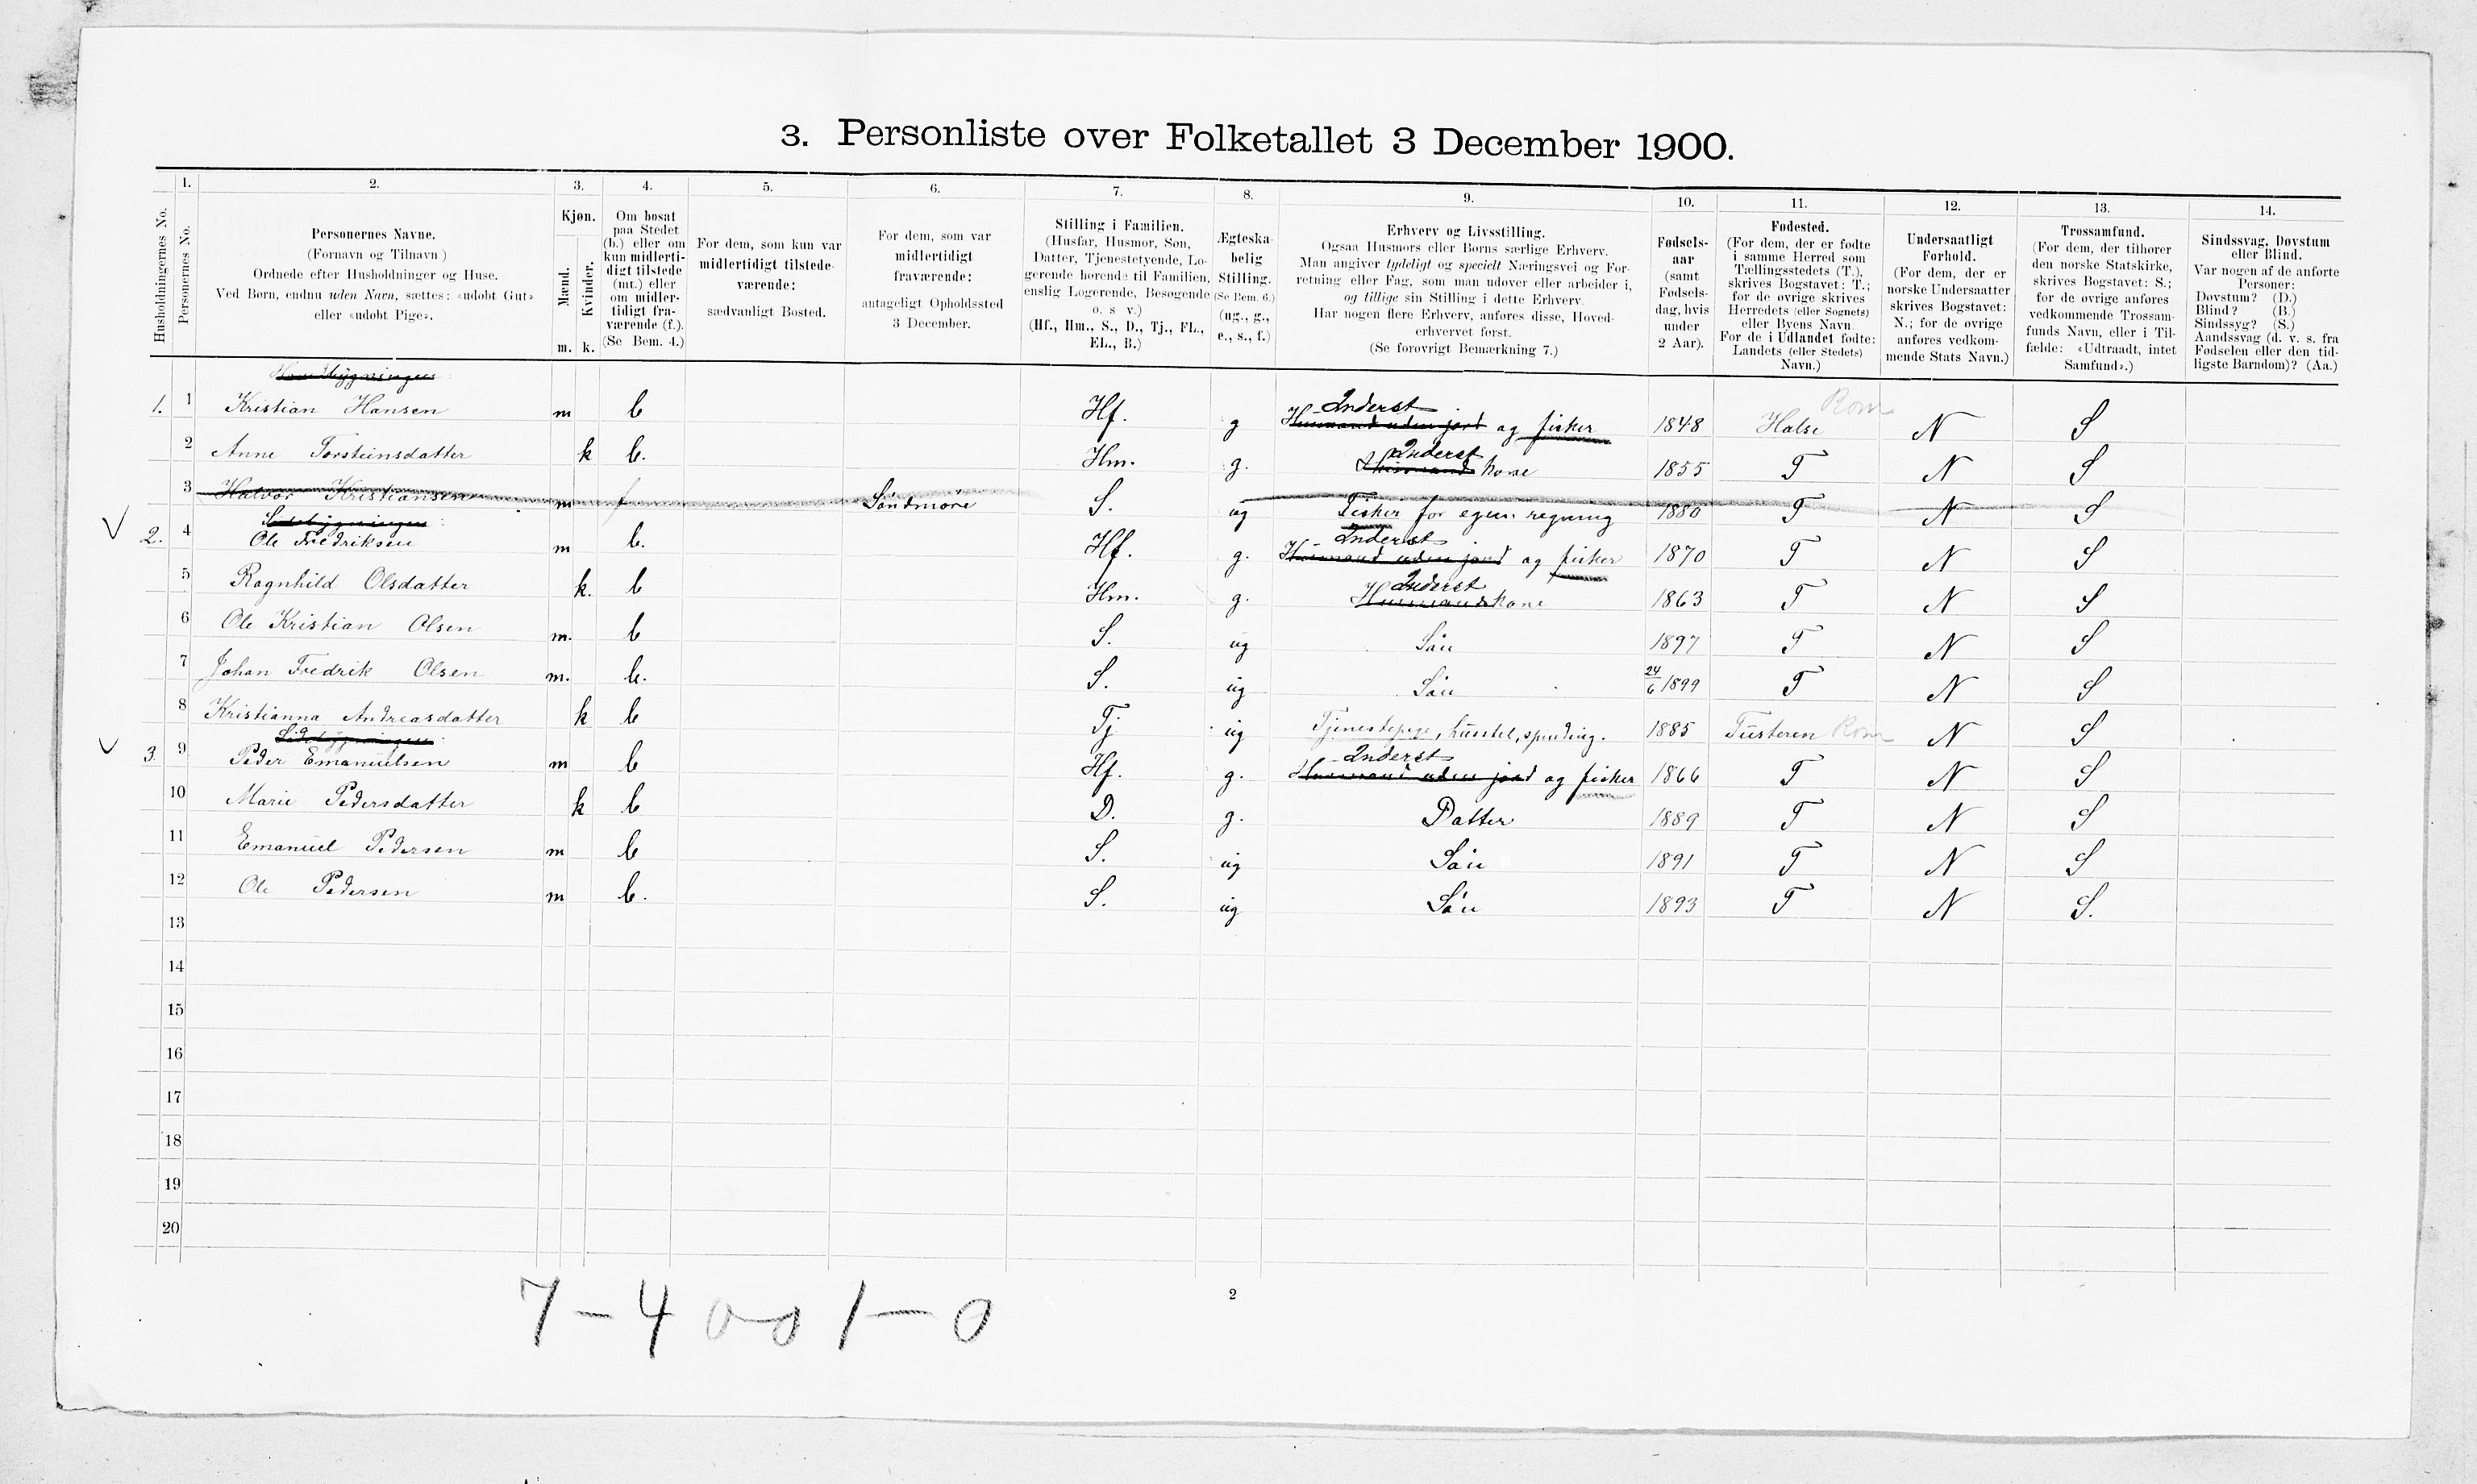 3. Personliste over Folketallet 3 December 1900.
1. 2. 3. 4. 5. 6. 7. 8. 9. 10. 11. 12. 13. 14.
Husholdningernes No.
Personernes No.
Personernes Navne.
(Fornavn og Tilnavn)
Ordnede efter Husholdninger og Huse.
Ved Børn, endnu uden Navn, sættes: «udøbt Gut»
eller «udøbt Pige».
Kjøn.
Mænd.
Kvinder.
m. k.
Om bosat
paa Stedet
(b.) eller om
kun midlerti-
digt tilstede
(mt.) eller
om midler-
tidigt fra-
værende (f.).
(Se Bem. 4.)
For dem, som kun var
midlertidigt tilstede-
værende:
sædvanligt Bosted.
For dem, som var
midlertidigt
fraværende:
antageligt Opholdssted
3 December.
Stilling i Familien.
(Husfar, Husmor, Søn,
Datter, Tjenestetyende, Lo-
gerende hørende til Familien,
enslig Logerende, Besøgende
o. s v.)
(Hf., Hm., S., D., Tj., FL.,
EL., B.)
Ægteska-
belig
Stilling.
(Se Bem. 6.)
(ug., g.,
e., s., f.)
Erhverv og Livsstilling.
Ogsaa Husmors eller Børns særlige Erhverv.
Man angiver tydeligt og specielt Næringsvei og For-
retning eller Fag, som man udøver eller arbeider i,
og tillige sin Stilling i dette Erhverv.
Har nogen flere Erhverv, anføres disse, Hoved-
erhvervet først.
(Se forøvrigt Bemærkning 7.)
Fødsels-
aar
(samt
Fødsels-
dag, hvis
under
2 Aar).
Fødested.
(For dem, der er fødte
i samme Herred som
Tællingsstedets (T.),
skrives Bogstavet: T.;
for de øvrige skrives
Herredets (eller Sognets)
eller Byens Navn.
For de i Udlandet fødte:
Landets (eller Stedets)
Navn.)
Undersaatligt
Forhold.
(For dem, der er
norske Undersaatter
skrives Bogstavet:
N.; for de øvrige
anføres vedkom-
mende Stats Navn.)
Trossamfund.
(For dem, der tilhører
den norske Statskirke,
skrives Bogstavet: S.;
for de øvrige anføres
vedkommende Trossam-
funds Navn, eller i Til-
fælde: «Udtraadt, intet
Samfund».)
Sindssvag, Døvstum
eller Blind.
Var nogen af de anførte
Personer:
Døvstum? (D.)
Blind? (B.)
Sindssyg? (S.)
Aandssvag (d. v. s. fra
Fødselen eller den tid-
ligste Barndom)? (Aa.)
Hovedbygningen:
1. 1 Kristian Hansen m b Hf. g Inderst Husmand uden jord og fisker 1848 Halse Rom N S
2 Anne Torsteinsdatter k b. Hm. g. Inderst Husmands kone 1855 T N S
3 Halvor Kristiansen m f Søndmøre S. ug Fisker for egen regning 1880 T N S
Sidebygningen:
2. 4 Ole Fredriksen m b. Hf. g. Inderst Husmand uden jord og fisker 1870 T N S
5 Ragnhild Olsdatter k. b Hm. g. Inderst Husmandskone 1863 T N S
6 Ole Kristian Olsen m. b S. ug Søn 1897 T N S
7 Johan Fredrik Olsen m. b. S. ug Søn 24/6 1899 T N S
8 Kristianna Andreasdatter k b Tj ug Tjenestepige, husstel, 1885 Tusteren Rom N S
Sidebygningen:
3. 9 Peder Emanuelsen m b Hf. g. Inderst Husmand uden jord og fisker 1866 T N S
10 Marie Pedersdatter k b D. g. Datter 1889 T N S
11 Emanuel Pedersen m b S. ug Søn 1891 T N S
12 Ole Pedersen m b. S. ug Søn 1893 T N S.
13
14
15
16
17
18
19
20
2
7 - 4 0-0 1 - 0